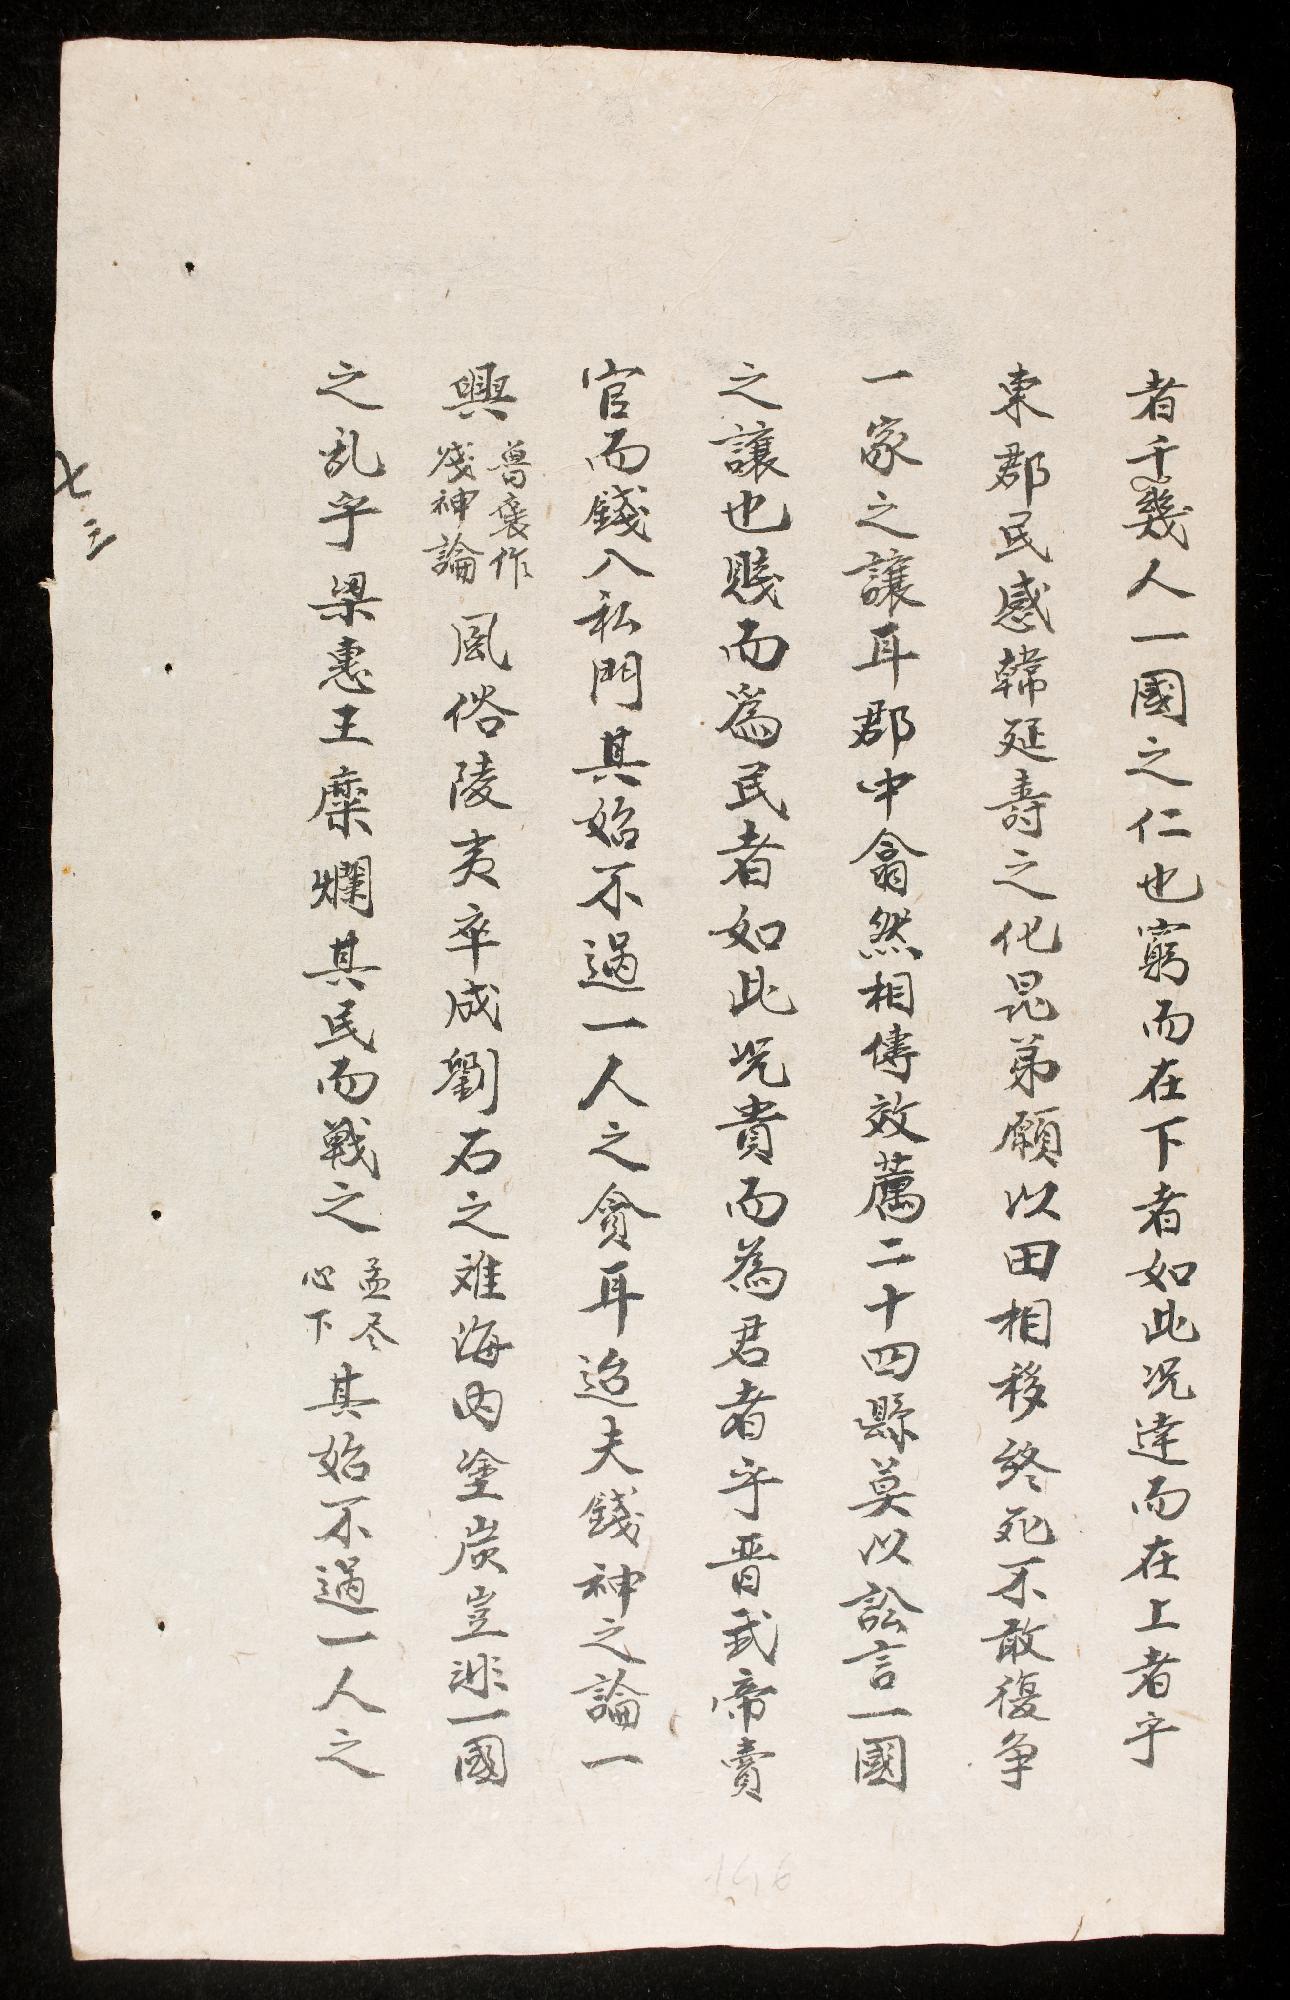 者千幾人一國之仁也窮而在下者如此况達而在上者乎
東郡民感韓延壽之化昆弟願以田相移終死不敢復争
一家之讓耳郡中翕然相傳效薦二十四縣莫以訟言一國
之讓也賤而爲民者如此况貴而為君者乎晋武帝賣
官而錢入私門其始不過一人之貪耳迨夫錢神之論一
興魯褒作錢神論風俗陵夷卒成劉石之难海内塗炭豈非一國
之乱乎梁惠王糜爛其民而戦之孟尽心下其始不過一人之
七三
146